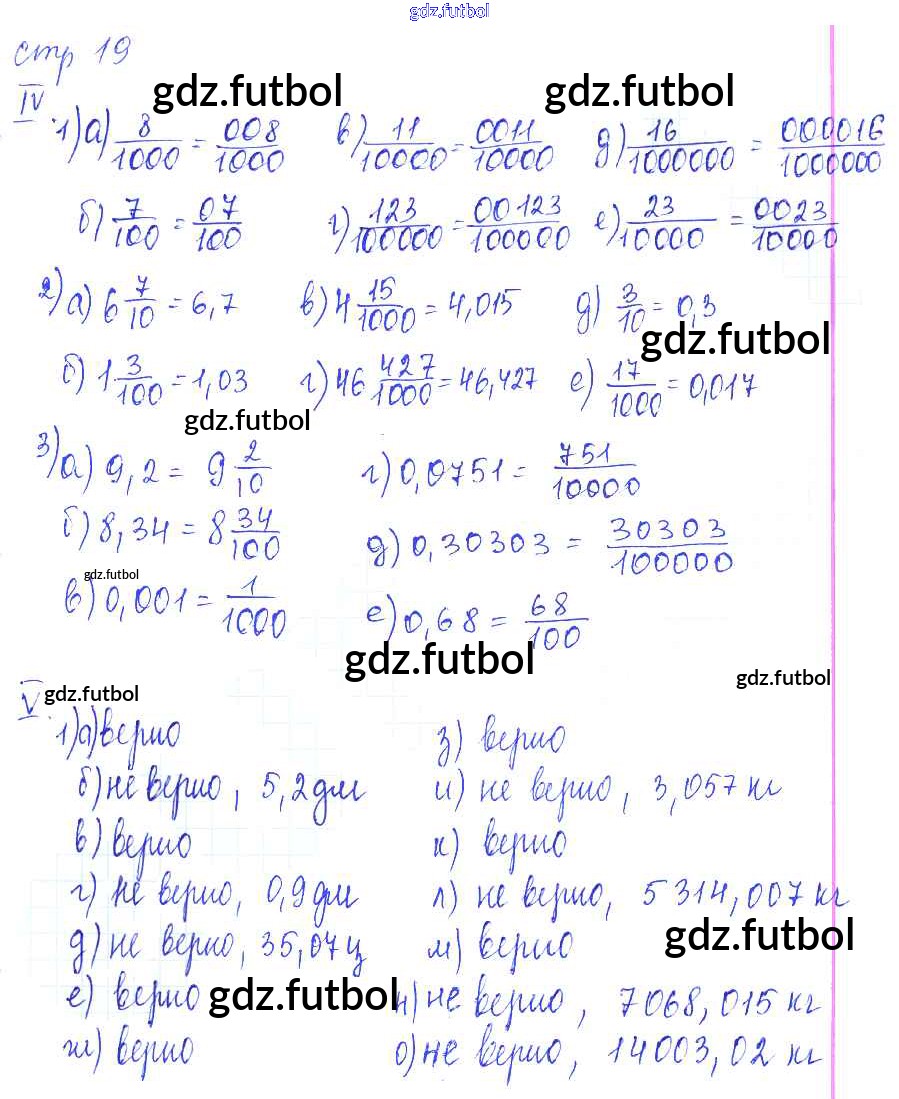 gdz.futbol
стр 19
gdz.futbol gdz.futbol
IV
1) а) 8/1000 = 008/1000 в) 11/10000 = 0011/10000 д) 16/1000000 = 000016/1000000
б) 7/100 = 07/100 г) 123/100000 = 00123/100000 е) 23/10000 = 0023/10000
2) а) 6 7/10 = 6,7 в) 4 15/1000 = 4,015 д) 3/10 = 0,3
gdz.futbol
б) 1 3/100 = 1,03 г) 46 427/1000 = 46,427 е) 17/1000 = 0,017
gdz.futbol
3) а) 9,2 = 9 2/10 г) 0,0751 = 751/10000
б) 8,34 = 8 34/100 д) 0,30303 = 30303/100000
gdz.futbol
в) 0,001 = 1/1000 е) 0,68 = 68/100
gdz.futbol gdz.futbol
V gdz.futbol
1) а) верно з) верно
б) не верно, 5,2 дм и) не верно, 3,057 кг
в) верно к) верно
г) не верно, 0,9 дм л) не верно, 5 314,007 кг
д) не верно, 35,04 ц м) верно gdz.futbol
е) верно gdz.futbol н) не верно, 7068,015 кг
ж) верно о) не верно, 14003,02 кг